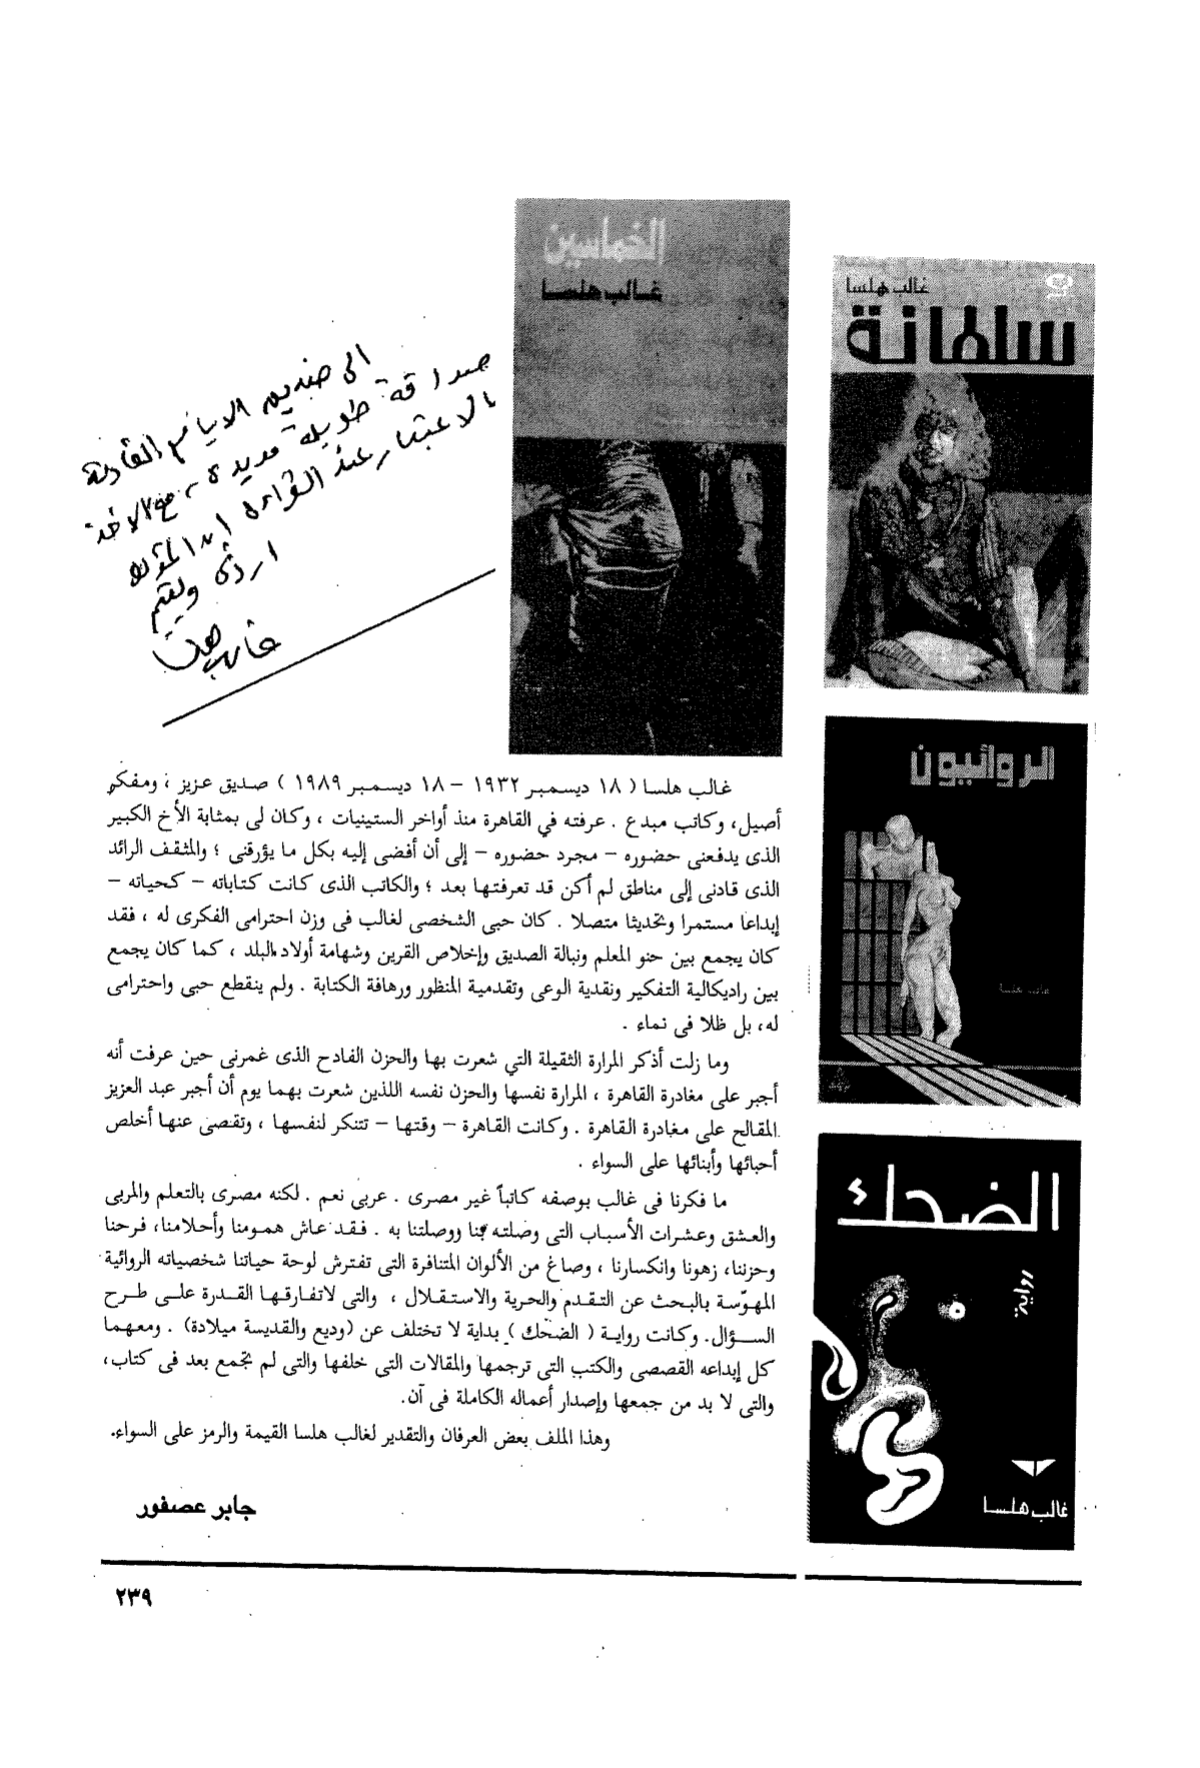 الخماسين
غالب هلسا
غالب هلسا
سلطانة
الى
الايام القادمة
صداقة طويلة مديدة مع الاخذ
بالاعتبار عند القراءة ان المؤلف
اردني ويتيم
غالب هلسا
الروائيون
غالب هلسا
غالب هلسا ( ١٨ ديسمبر ١٩٣٢ – ١٨ ديسمبر ١٩٨٩ ) صديق عزيز ، ومفكر
أصيل، وكاتب مبدع . عرفته في القاهرة منذ أواخر الستينيات ، وكان لى بمثابة الأخ الكبير
الذى يدفعنى حضوره – مجرد حضوره – إلى أن أفضى إليه بكل ما يؤرقنى ؛ والمثقف الرائد
الذى قادنى إلى مناطق لم أكن قد تعرفتها بعد ؛ والكاتب الذى كانت كتاباته – كحياته –
إبداعا مستمرا وتحديثا متصلا . كان حبى الشخصى لغالب فى وزن احترامى الفكرى له ، فقد
كان يجمع بين حنو المعلم ونبالة الصديق وإخلاص القرين وشهامة أولاد البلد ، كما كان يجمع
بين راديكالية التفكير ونقدية الوعى وتقدمية المنظور ورهافة الكتابة . ولم ينقطع حبى واحترامى
له، بل ظلا فى نماء .
وما زلت أذكر المرارة الثقيلة التي شعرت بها والحزن الفادح الذى غمرنى حين عرفت أنه
أجبر على مغادرة القاهرة ، المرارة نفسها والحزن نفسه اللذين شعرت بهما يوم أن أجبر عبد العزيز
المقالح على مغادرة القاهرة . وكانت القاهرة – وقتها – تتنكر لنفسها ، وتقصى عنها أخلص
أحبائها وأبنائها على السواء .
ما فكرنا فى غالب بوصفه كاتباً غير مصرى . عربى نعم . لكنه مصرى بالتعلم والمربى
والعشق وعشرات الأسباب التى وصلته بنا ووصلتنا به . فقد عاش همومنا وأحلامنا، فرحنا
وحزننا، زهونا وانكسارنا ، وصاغ من الألوان المتنافرة التى تفترش لوحة حياتنا شخصياته الروائية
المهوّسة بالبحث عن التقدم والحرية والاستقلال ، والتى لاتفارقها القدرة على طرح
السؤال. وكانت رواية ( الضحك ) بداية لا تختلف عن (وديع والقديسة ميلادة) . ومعهما
كل إبداعه القصصى والكتب التى ترجمها والمقالات التى خلفها والتى لم تجمع بعد فى كتاب،
والتى لا بد من جمعها وإصدار أعماله الكاملة فى آن.
وهذا الملف بعض العرفان والتقدير لغالب هلسا القيمة والرمز على السواء.
جابر عصفور
الضحك
رواية
غالب هلسا
٢٣٩